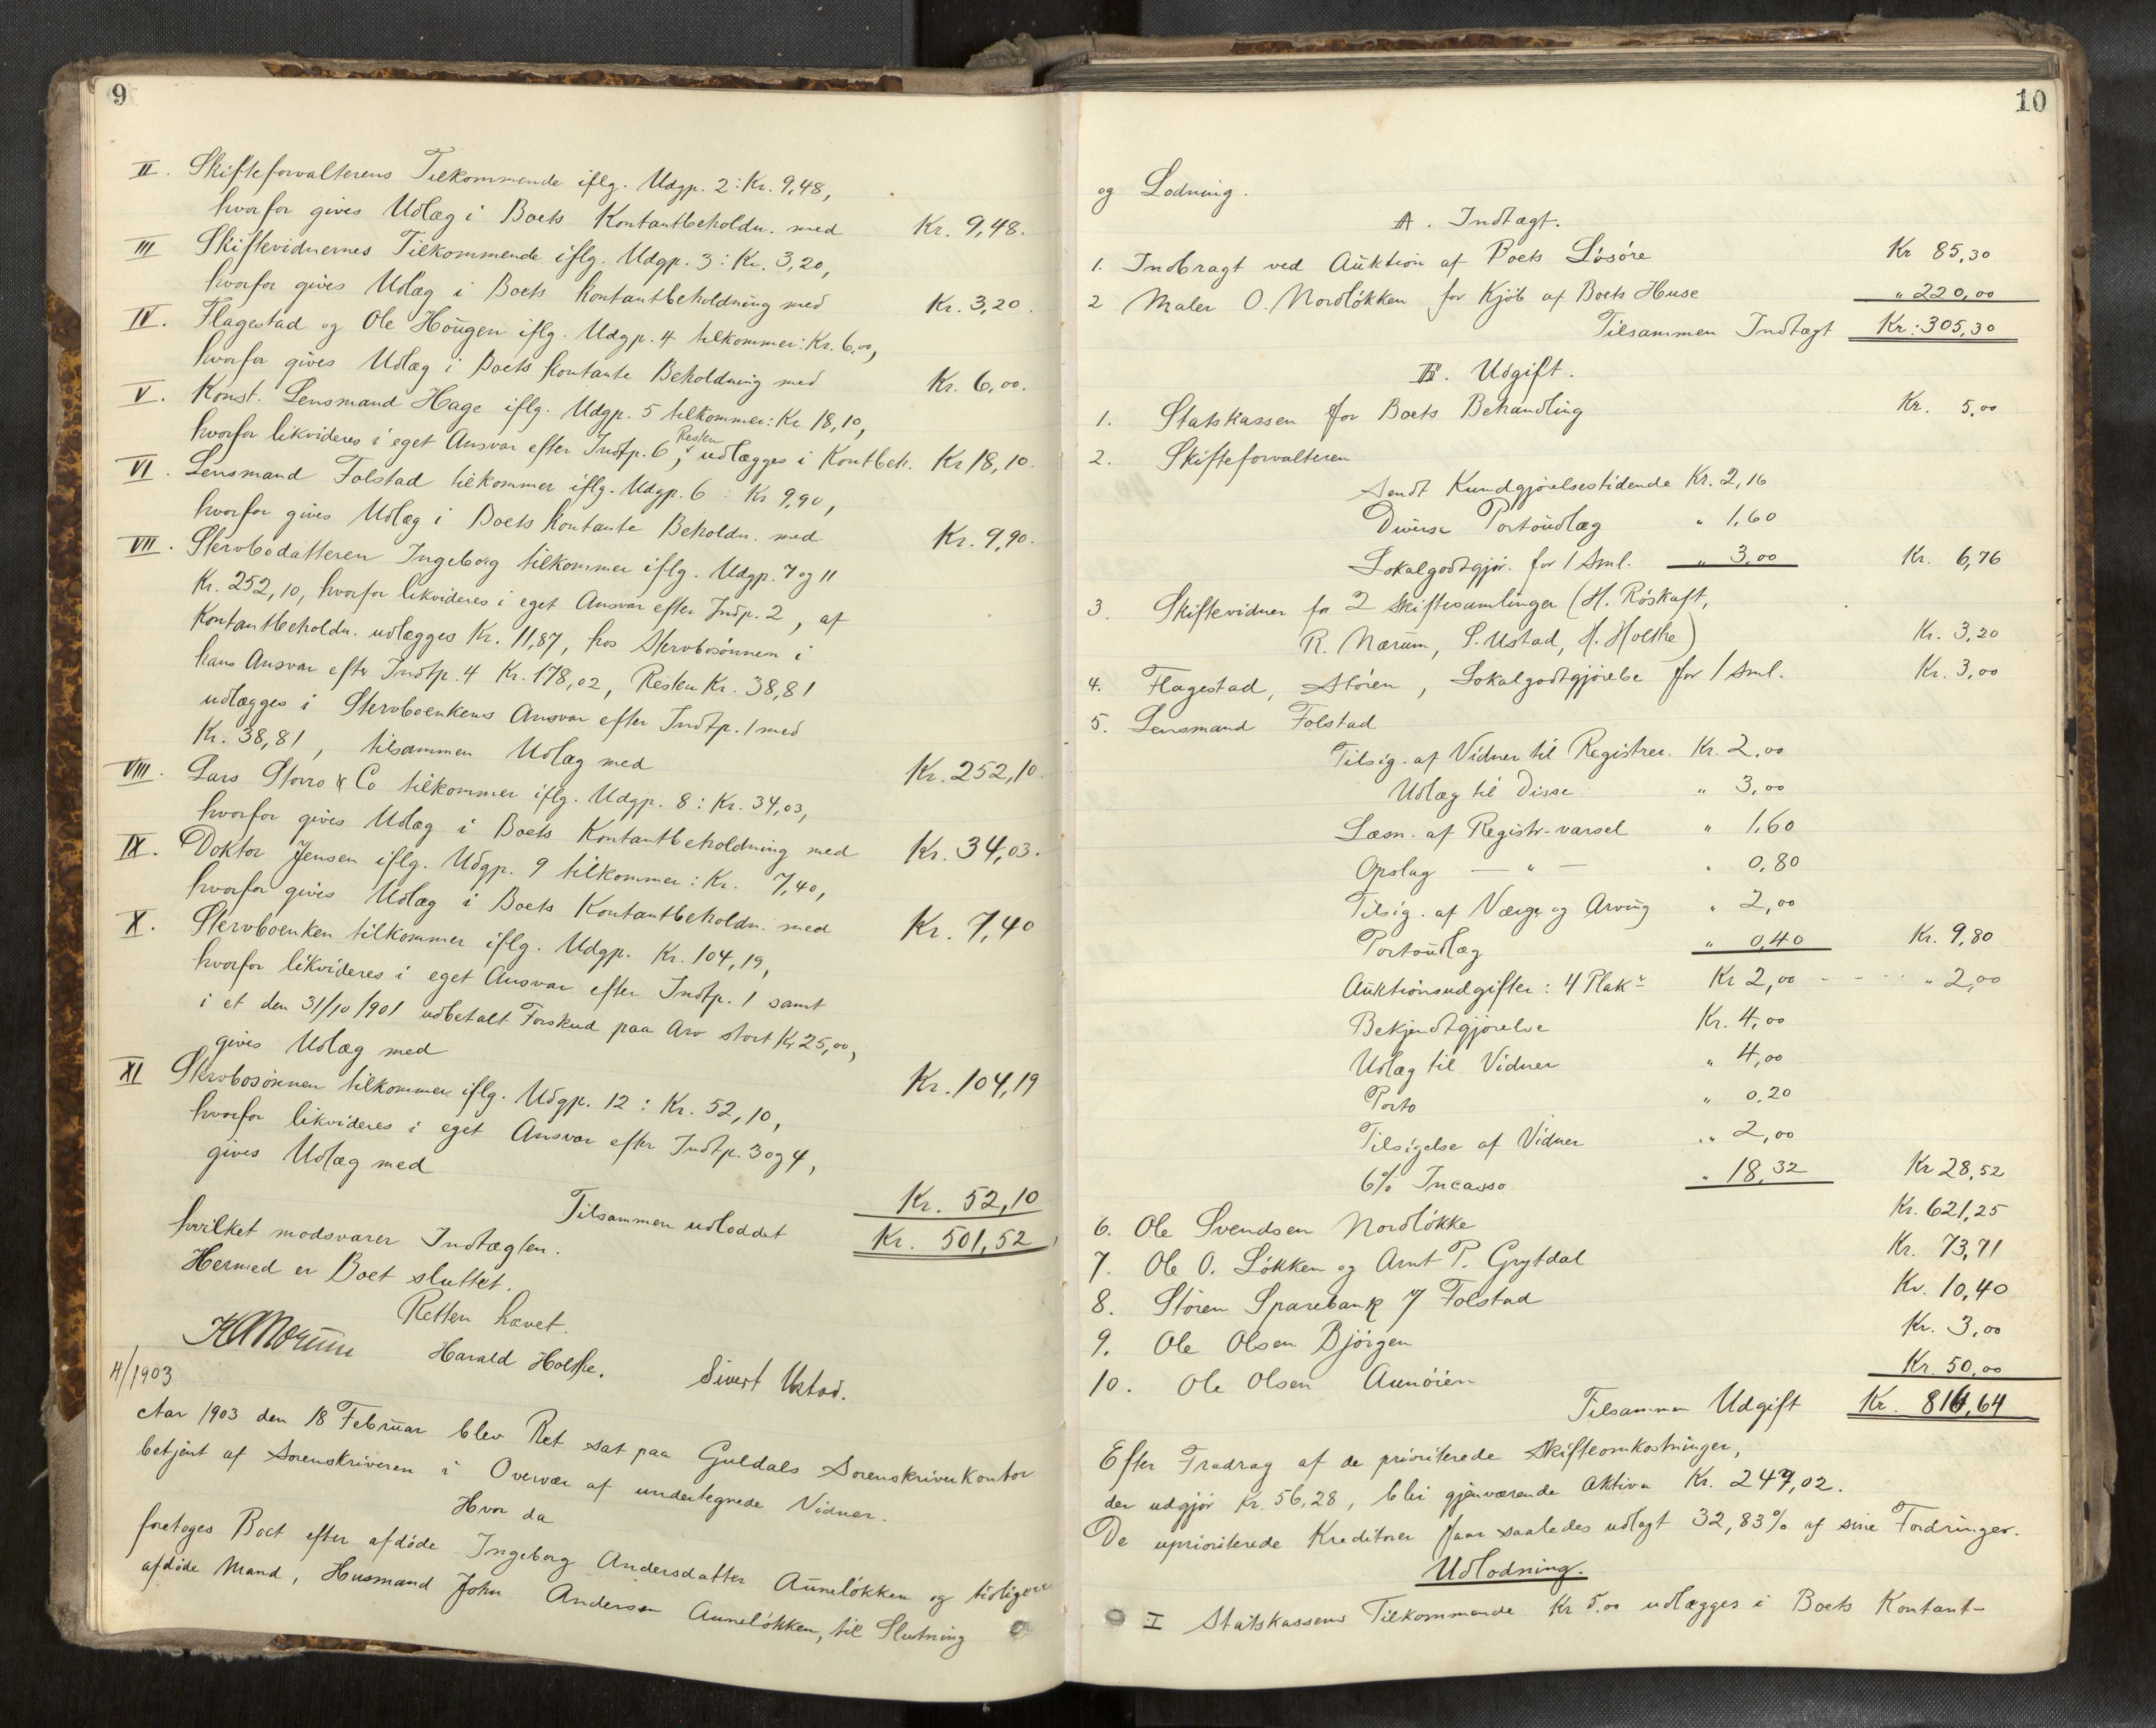 9
II. Skifteforvalterens Tilkommende iflg. Udgp. 2: Kr. 9,48,
hvorfor gives Udlæg i Boets Kontantbeholdn. med Kr. 9,48.
III Skiftevidnernes Tilkommende iflg. Udgp. 3: Kr. 3,20,
hvorfor gives Udlæg i Boets Kontantbeholdning med Kr. 3,20.
IV. Flagestad og Ole Hougen iflg. Udgp. 4 tilkommer: Kr. 6,00,
hvorfor gives Udlæg i Boets kontante Beholdning med Kr. 6,00.
V. Konst. Lensmand Hage iflg. Udgp. 5 tilkommer: Kr 18,10,
hvorfor likvideres i eget Ansvar efter Indtp. 6, Resten udlægges i Kontbeh. Kr 18,10.
VI. Lensmand Folstad tilkommer iflg. Udgp. 6: Kr 9,90,
hvorfor gives Udlæg i Boets kontante Beholdn. med Kr. 9,90.
VII. Stervbodatteren Ingeborg tilkommer iflg. Udgp. 7 og 11
Kr. 252,10, hvorfor likvideres i eget Ansvar efter Indp. 2, af
Kontantbeholdn. udlægges Kr. 11,87, hos Stervbosönnen i
hans Ansvar efter Indtp. 4 Kr. 178,02, Resten Kr. 38,81
udlægges i Stervboenkens Ansvar efter Indtp. 1 med
Kr. 38,81, tilsammen Udlæg med Kr. 252,10.
VIII. Lars Storro & Co tilkommer iflg. Udgp. 8: Kr. 34,03,
hvorfor gives Udlæg i Boets Kontantbeholdning med Kr. 34,03.
IX. Doktor Jensen iflg. Udgp. 9 tilkommer: Kr. 7,40,
hvorfor gives Udlæg i Boets Kontantbeholdn. med Kr. 7,40
X. Stervboenken tilkommer iflg. Udgp. Kr. 104,19,
hvorfor likvideres i eget Ansvar efter Indtp. 1 samt
i et den 31/10 1901 udbetalt Forskud paa Arv stort Kr 25,00,
gives Udlæg med Kr. 104,19
XI Stervbosönnen tilkommer iflg. Udgp. 12: Kr. 52,10,
hvorfor likvideres i eget Ansvar efter Indtp. 3 og 4,
gives Udlæg med Kr. 52,10
Tilsammen udloddet Kr. 501,52
hvilket modsvarer Indtægten.
Hermed er Boet sluttet.
Retten hævet.
Harald Holthe. Sivert Ustad.
4/1903
Aar 1903 den 18 Februar blev Ret sat paa Guldals Sorenskriverkontor
betjent af Sorenskriveren i Overvær af undertegnede Vidner.
Hvor da
foretoges Boet efter afdöde Ingeborg Andersdatter Aunelökken og tidligere
afdöde Mand, Husmand John Andersen Aunelökken, til Slutning
10
og Lodning.
A. Indtægt.
1. Indbragt ved Auktion af Boets Lösöre Kr 85,30
2 Maler O. Nordlökken for Kjöb af Boets Huse " 220,00
Tilsammen Indtægt Kr: 305,30
B. Udgift.
1. Statskassen for Boets Behandling Kr. 5,00
2. Skifteforvalteren
Sendt Kundgjörelsestidende Kr. 2,16
Diverse Portoudlæg " 1,60
Lokalgodtgjör. for 1 Saml. " 3,00 Kr. 6,76
3 Skiftevidner for 2 Skiftesamlinger (H. Röskaft,
R. Nærum, S. Ustad, H. Holthe) Kr. 3,20
4. Flagestad, Stören, Lokalgodtgjörelse for 1 Saml. Kr. 3,00
5. Lensmand Folstad
Tilsig. af Vidner til Registrer. Kr. 2,00
Udlæg til Disse " 3,00
Læsn. af Registr-varsel " 1,60
Opslag — " — " 0,80
Tilsig. af Værge og Arving " 2,00
Portoudlæg " 0,40 Kr. 9,80
Auktionsudgifter: 4 Plakr Kr 2,00 - - - " 2,00
Bekjendtgjörelse Kr. 4,00
Udlæg til Vidner " 4,00
Porto " 0,20
Tilsigelse af Vidner " 2,00
6% Incasso " 18,32 Kr 28,52
6. Ole Svendsen Nordlökke Kr. 621,25
7. Ole O. Lökken og Arnt P. Grytdal Kr. 73,71
8. Stören Sparebank 7 Folstad Kr. 10,40
9. Ole Olsen Björgen Kr. 3,00
10. Ole Olsen Aunöien Kr. 50,00
Tilsammen Udgift Kr. 816,64
Efter Fradrag af de prioriterede Skifteomkostninger,
der udgjör Kr. 56,28, bli gjenværende Aktiva Kr. 247,02.
De uprioriterede Kreditorer faar saaledes udlagt 32,83% af sine Fordringer.
Udlodning.
I Statskassens Tilkommende Kr 5.00 udlægges i Boets Kontant-